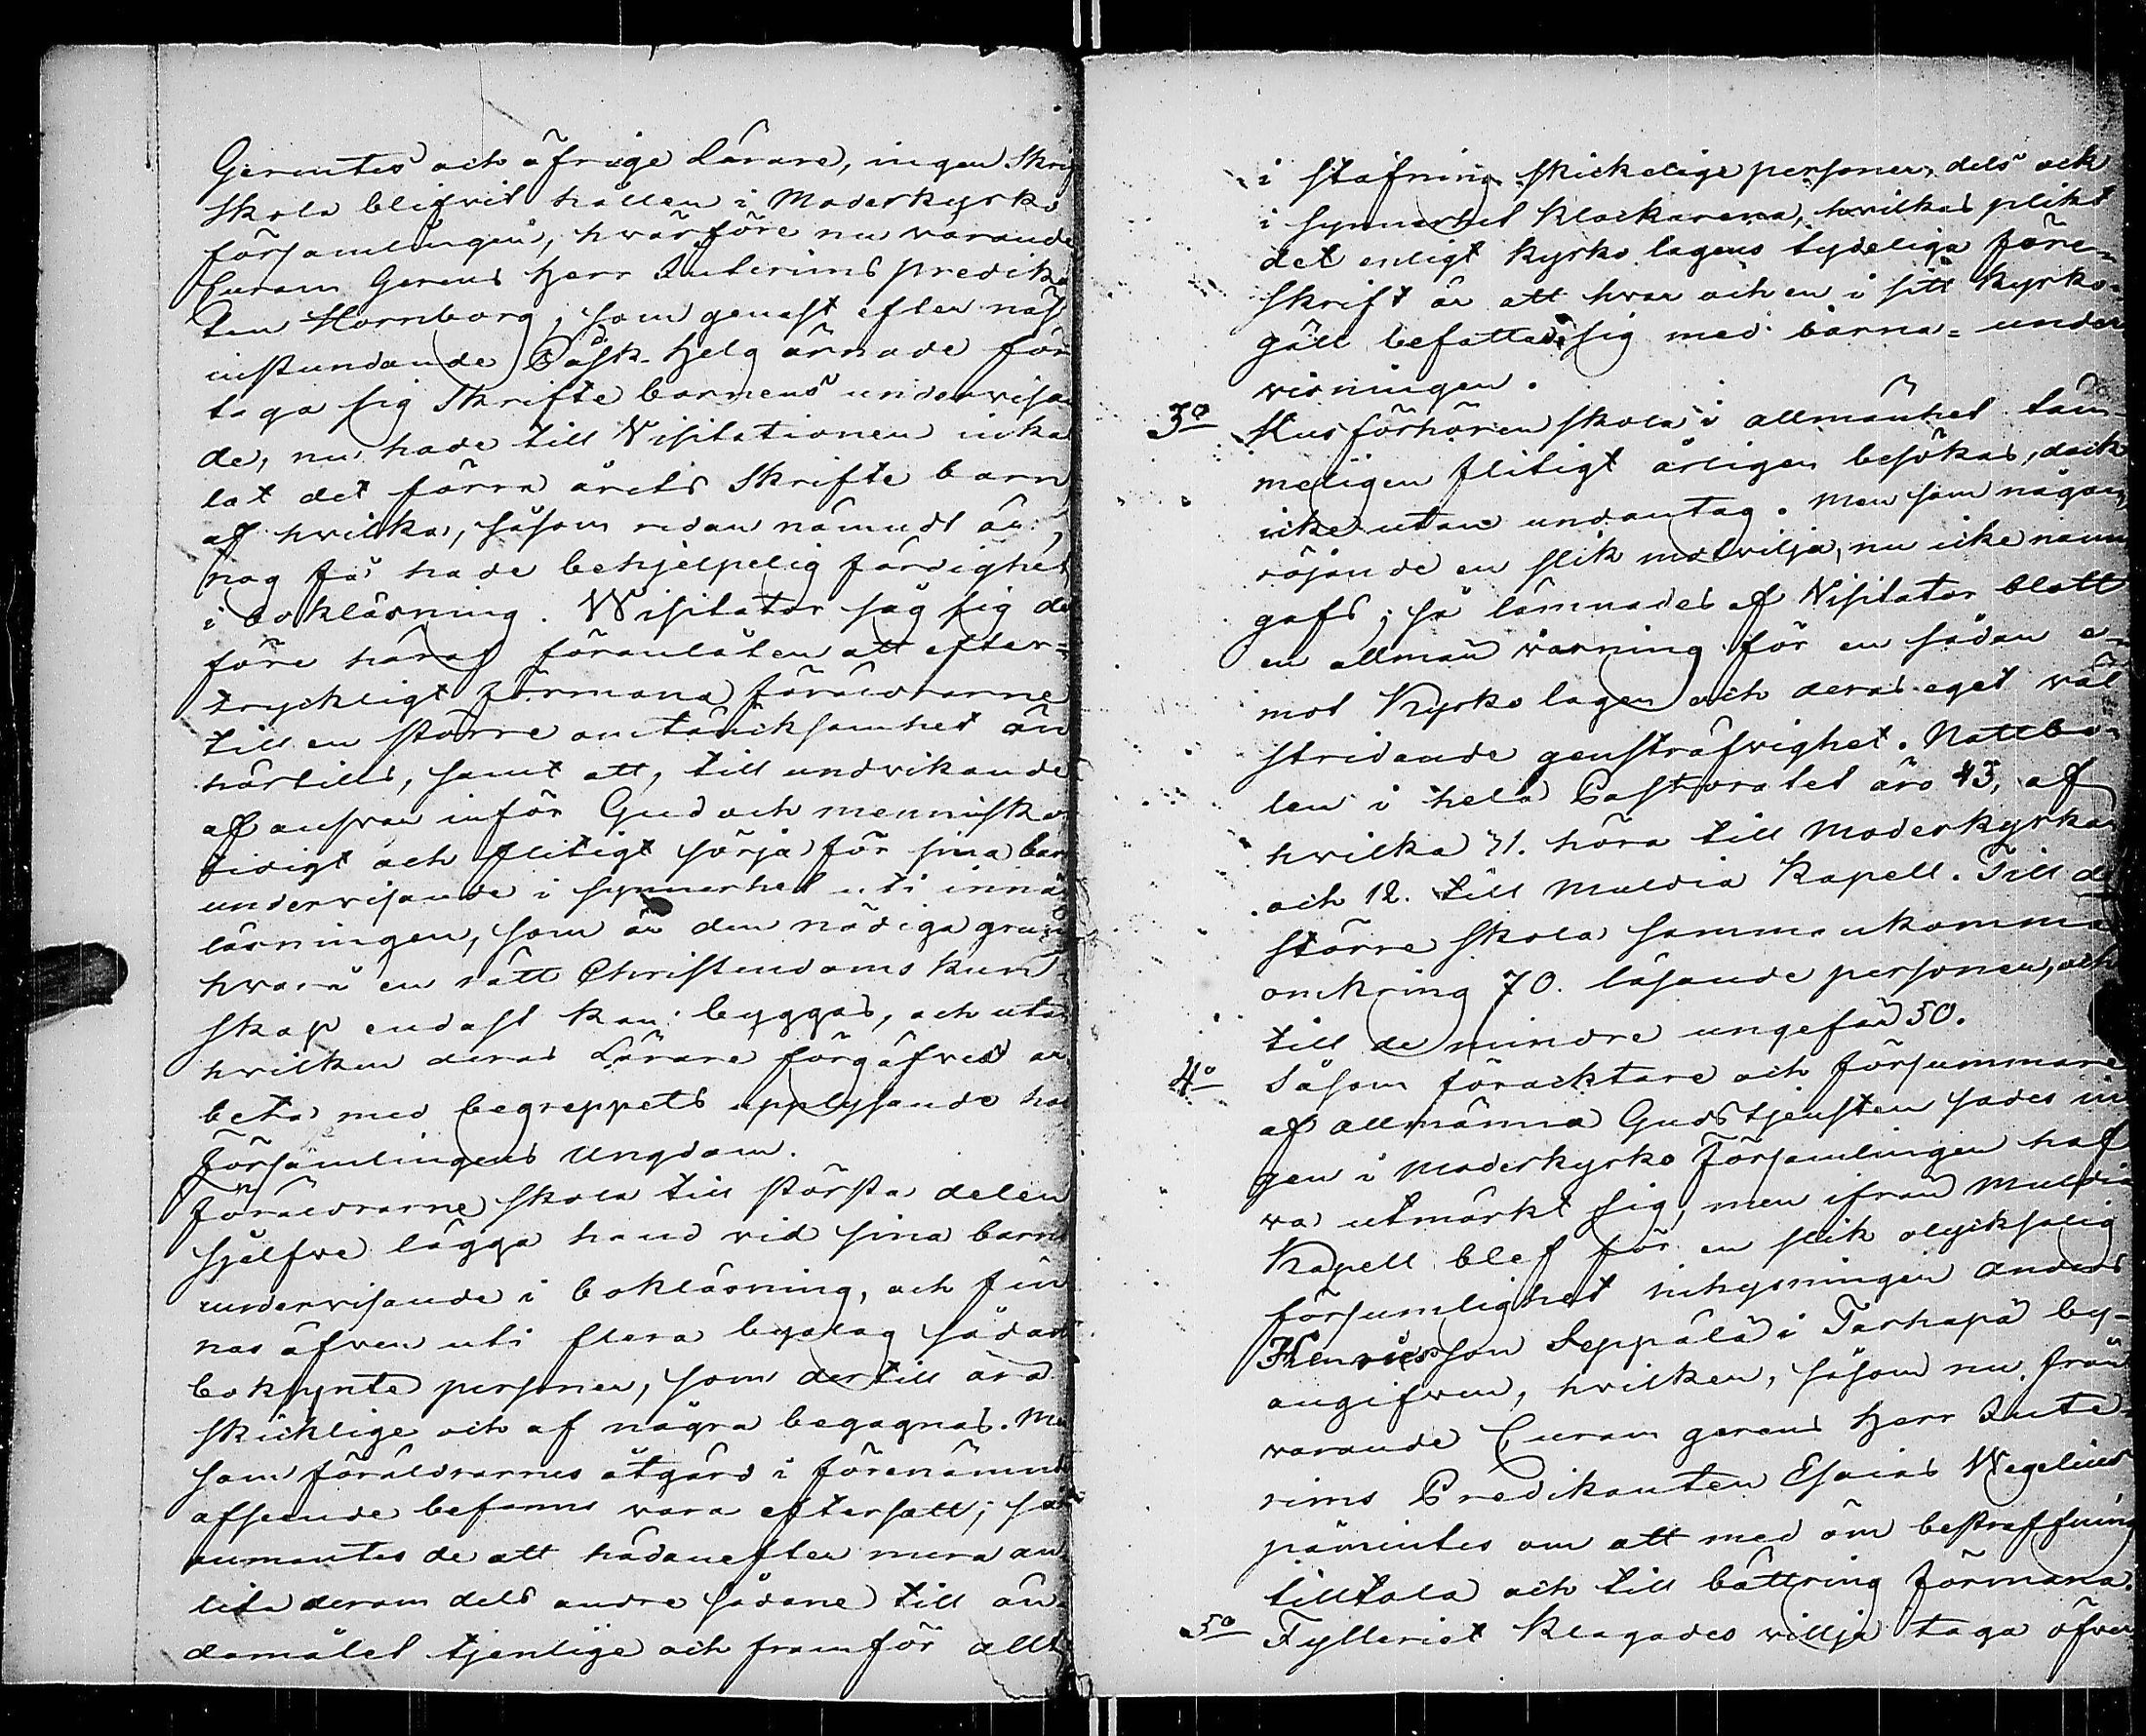 Gerentes och öfrige Lärare, ingen Skrif
skola blifvit hållen i Moderkyrko
församlingen, hvarföre nu varande
Curam Gerens Herr Interims predika
ten Hornborg; som genast efter näst
instundande Påsk-Helg ärnade före
taga sig Skrifte barnens undervisan
de, nu hade till Visitationen inkal
lat det förra årets Skrifte barn
af hvilka, såsom redan nämndt är,
nog få hade behjelpelig färdighet
i bokläsning. Visitator såg sig der
före häraf föranlåten att efter=
tryckligt förmana föräldrarne
till en större omtäncksamhet än
härtills, samt att, till undvikande
af ansvar inför Gud och menniskor
tidigt och flitigt sörja för sina barns
undervisande i synnerhet uti innan
läsningen, som är den nödiga grund
hvarå en rätt Christendoms kun
skap endast kan byggas, och utan
hvilken deras Lärare förgäfves ar
beta med begreppets upplysande hos
Församlingens Ungdom.
Föräldrarne skola till största delen
sjelfve lägga hand vid sina barns
undervisande i bokläsning, och fin
nas äfven uti flera byalag sådane
bokkynte personer, som dertill äro
skicklige och af några begagnas. Men
som föräldrarnes åtgärd i förenämnde
afseende befanns vara eftersatt; så
anmantes de att hädanefter mera an
lita derom dels andre sådane till än
damålet tjenlige och framför allt
i stafning skickelige personer, dels ock
i synnerhet Klockarena, hvilkas plikt
det enligt Kyrko lagens tydeliga före=
skrift är att hvar och en i sitt Kyrko-
gäll befatta sig med barna-under
visningen.
3o Husförhören skola i allmänhet täm-
meligen flitigt årligen besökas, dock
icke utan undantag. Men som någon,
röjande en slik motvilja, nu icke namn
gafs; så lämnades af Visitator blott
en allmän varning för en sådan e-
mot Kyrko lagen och deras eget väl
stridande gensträfvighet. Nattba-
len i hela Pastoratet äro 43, af
hvilka 31. höra till Moderkyrkan
och 12. till Muldia Kapell. Till de
större skola sammankomma
omkring 70. läsande personer, och
till de mindre ungefär 50.
4o Såsom föracktare och försummare
af allmänna Gudstjensten sades in
gen i Moderkyrko Församlingen haf
va utmärkt sig, men ifrån Muldia
Kapell blef för en slik olycksalig
försumlighet inhysningen Anders
Henricsson Seppälä i Tarhapä by-
angifven, hvilken, såsom nu från
varande Curam gerens Herr Inte-
rims Predikanten Esaias Wegelius
påmintes om att med öm bestraffning
tilltala och till bättring förmana.
5o Fylleriet klagades villja taga öfver